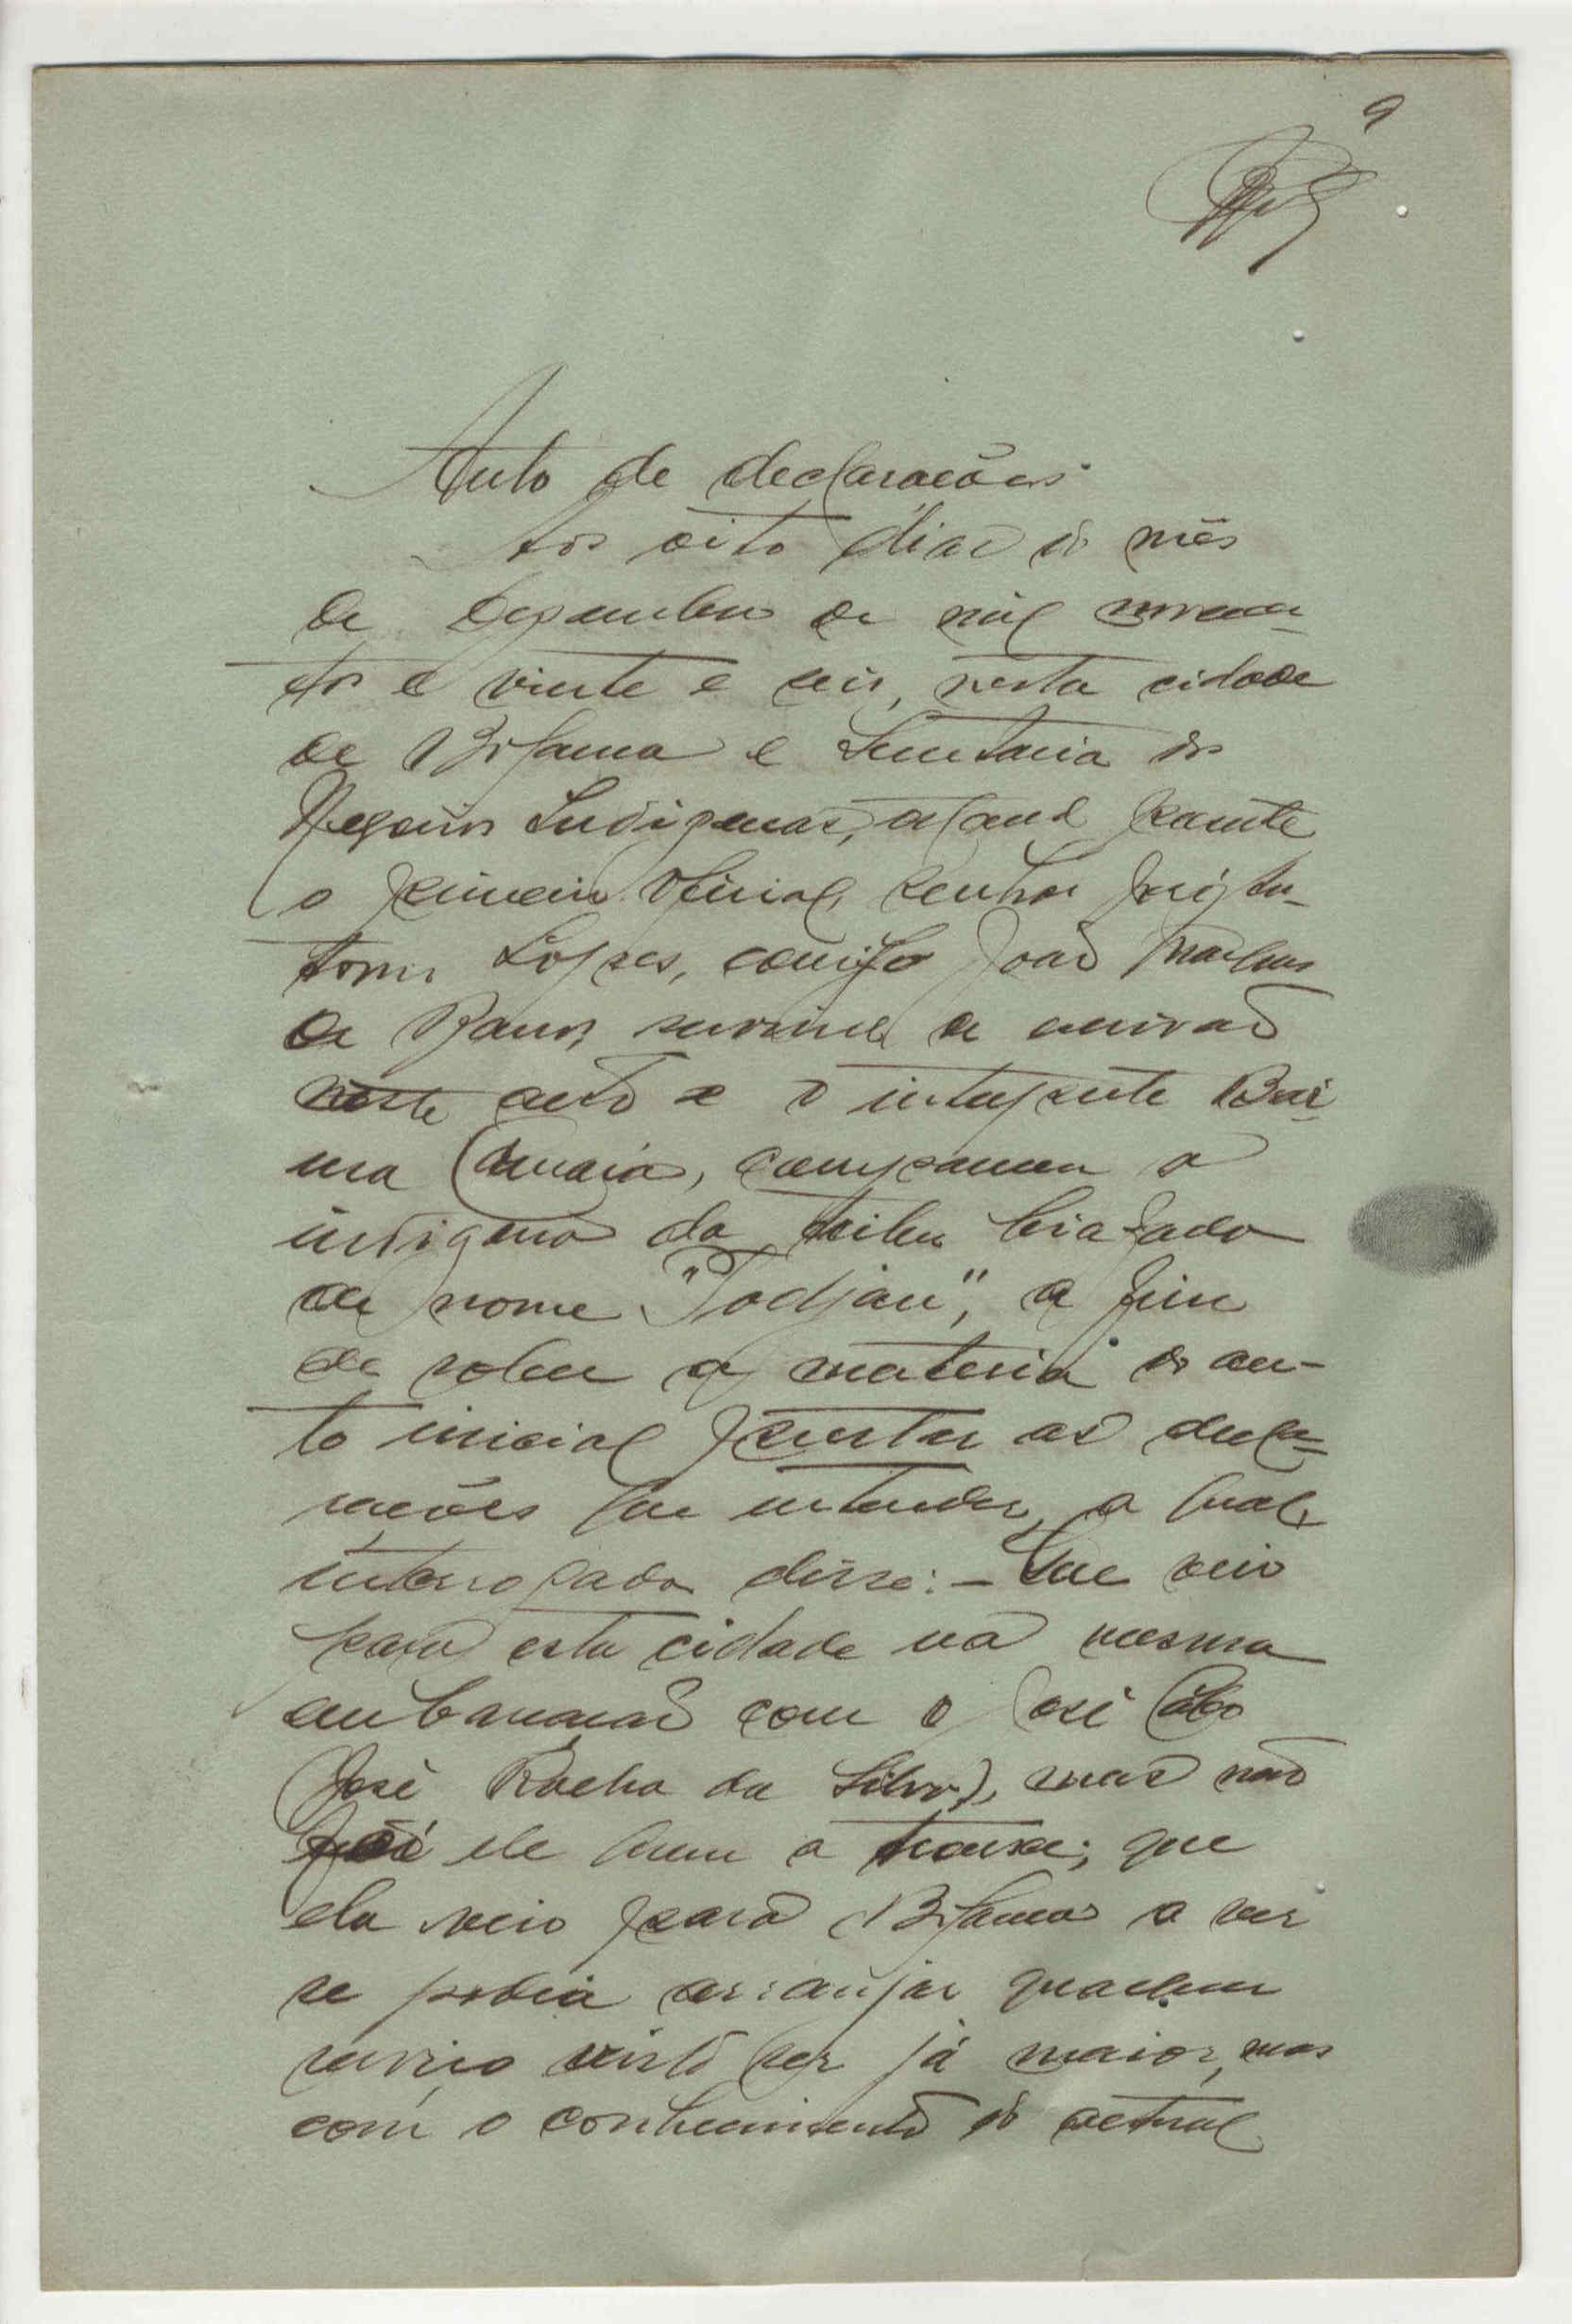 9
Auto de declarações
Aos oito dias do mês
de Dezembro de mil novecen-
tos e vinte e seis, nesta cidade
de Bolama e Secretaria dos
Negocios Indigenas, perante
o primeiro oficial, senhor
Lopes, comigo João
de Barros, servindo de escrivão
neste auto e o interprete Brai-
ma Camará, compareceu a
indigena da tribu biafada
de nome "Todjan", a fim
de sobre a materia do au-
to inicial prestar as decla-
rações que entender, a qual,
interrogada disse: - Que veio
para esta cidade na mesma
embarcação com o José Cábo
José Rocha da Silva), mas não
foi ele quem a trouxe; que
ela veio para Bolama a ver
se podia arranjar qualquer
serviço visto ser já maior, mas
com o conhecimento do actual